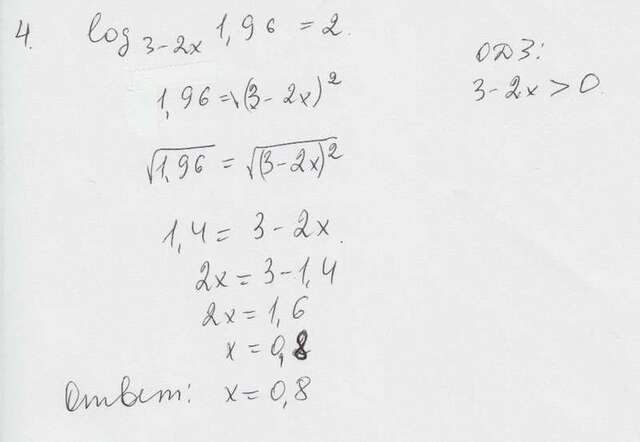 4. log₃₋₂ₓ 1,96 = 2.
ОДЗ:
3-2x > 0.
1,96 = (3-2x)²
√1,96 = √(3-2x)²
1,4 = 3-2x.
2x = 3-1,4
2x = 1,6
x = 0,8
Ответ: x = 0,8